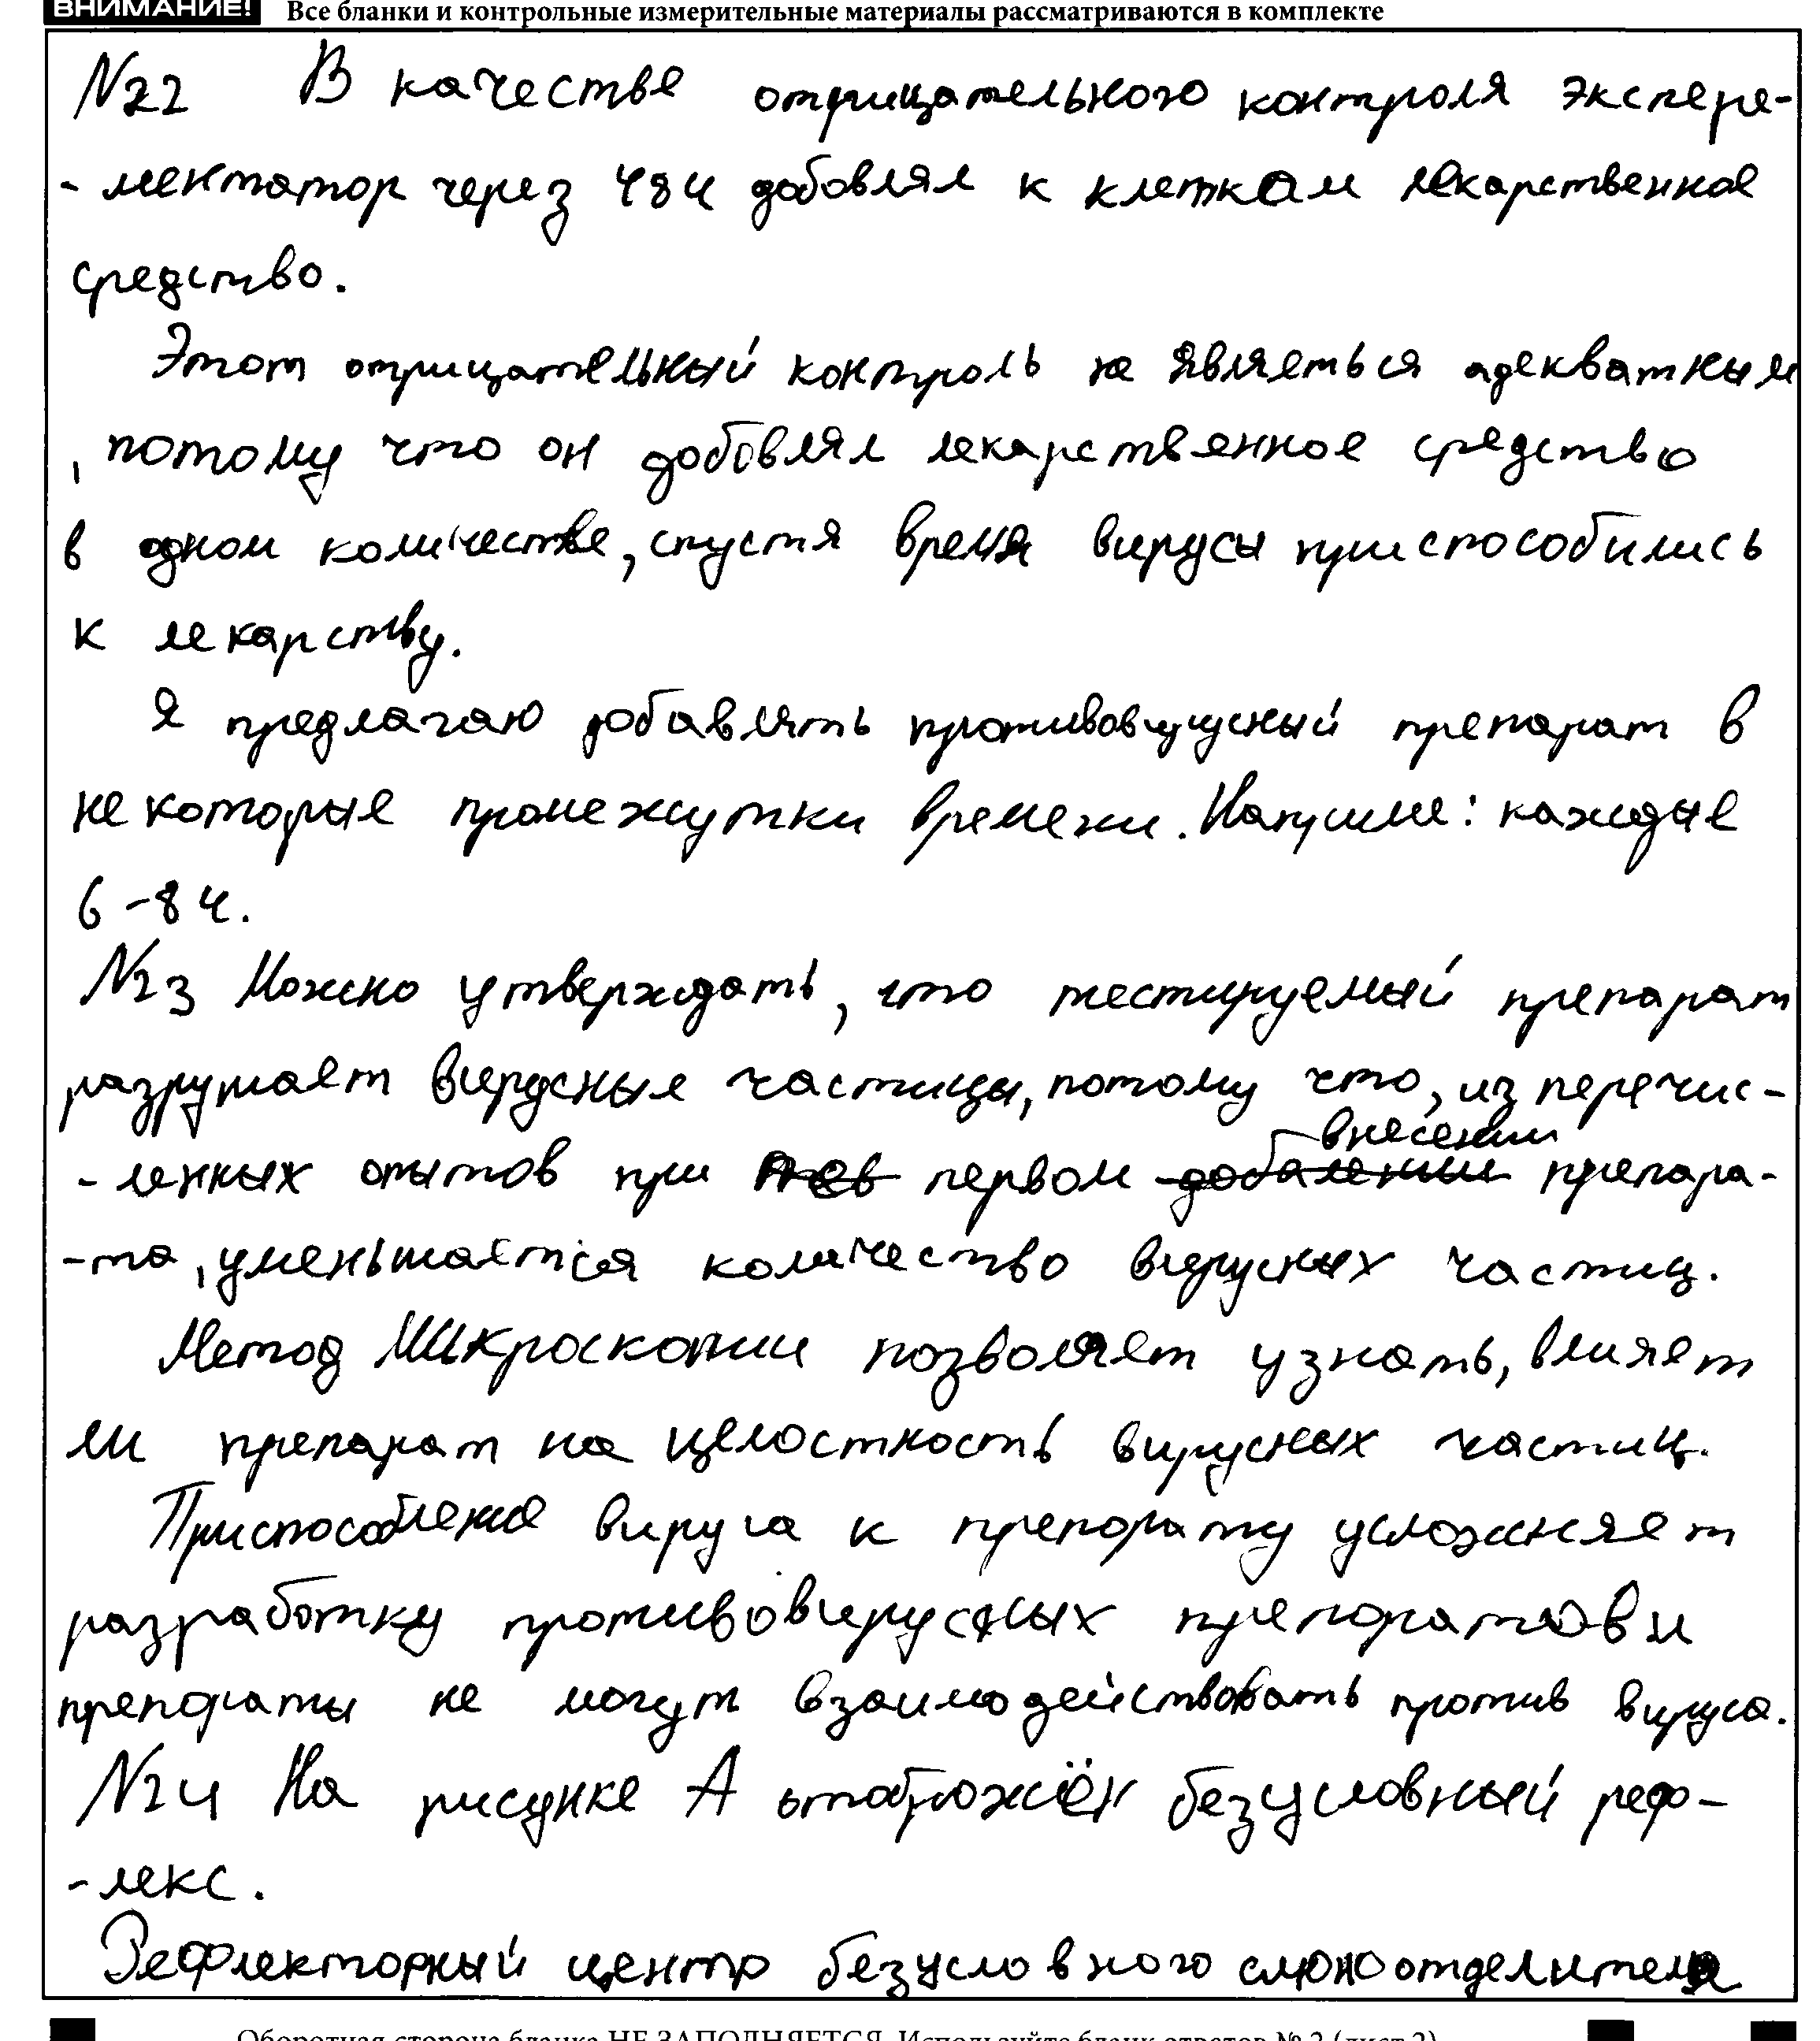 ВНИМАНИЕ! Все бланки и контрольные измерительные материалы рассматриваются в комплекте
N22 В качестве отрицательного контроля экспере-
- ментатор через 48ч добовлял к клеткам лекарственное
средство.
Этот отрицательный контроль не являеться адекватным
, потому что он добовлял лекарственное средство
в одном количестве, спустя время вирусы приспособились
к лекарству.
Я предлагаю добавлять противовирусный препарат в
некоторые промежутки времени. Наприме: каждые
6-8ч.
N23 Можно утверждать, что тестируемый препарат
разрушает вирусные частицы, потому что, из перечис-
- ленных опытов при первом внесении препара-
-та, уменьшается количество вирусных частиц.
Метод Микроскопии позволяет узнать, влияет
ли препарат на целостность вирусных частиц.
Приспособление вируса к препорату усложняет
разработку противовирусных препоратов и
препораты не могут взаимодействовать против вируса.
N24 На рисунке А отоброжён безусловный реф-
-лекс.
Рефлекторный центр безусловного слюноотделителя
Оборотная сторона бланка НЕ ЗАПОЛНЯЕТСЯ. Используйте бланк ответов № 2 (лист 2)